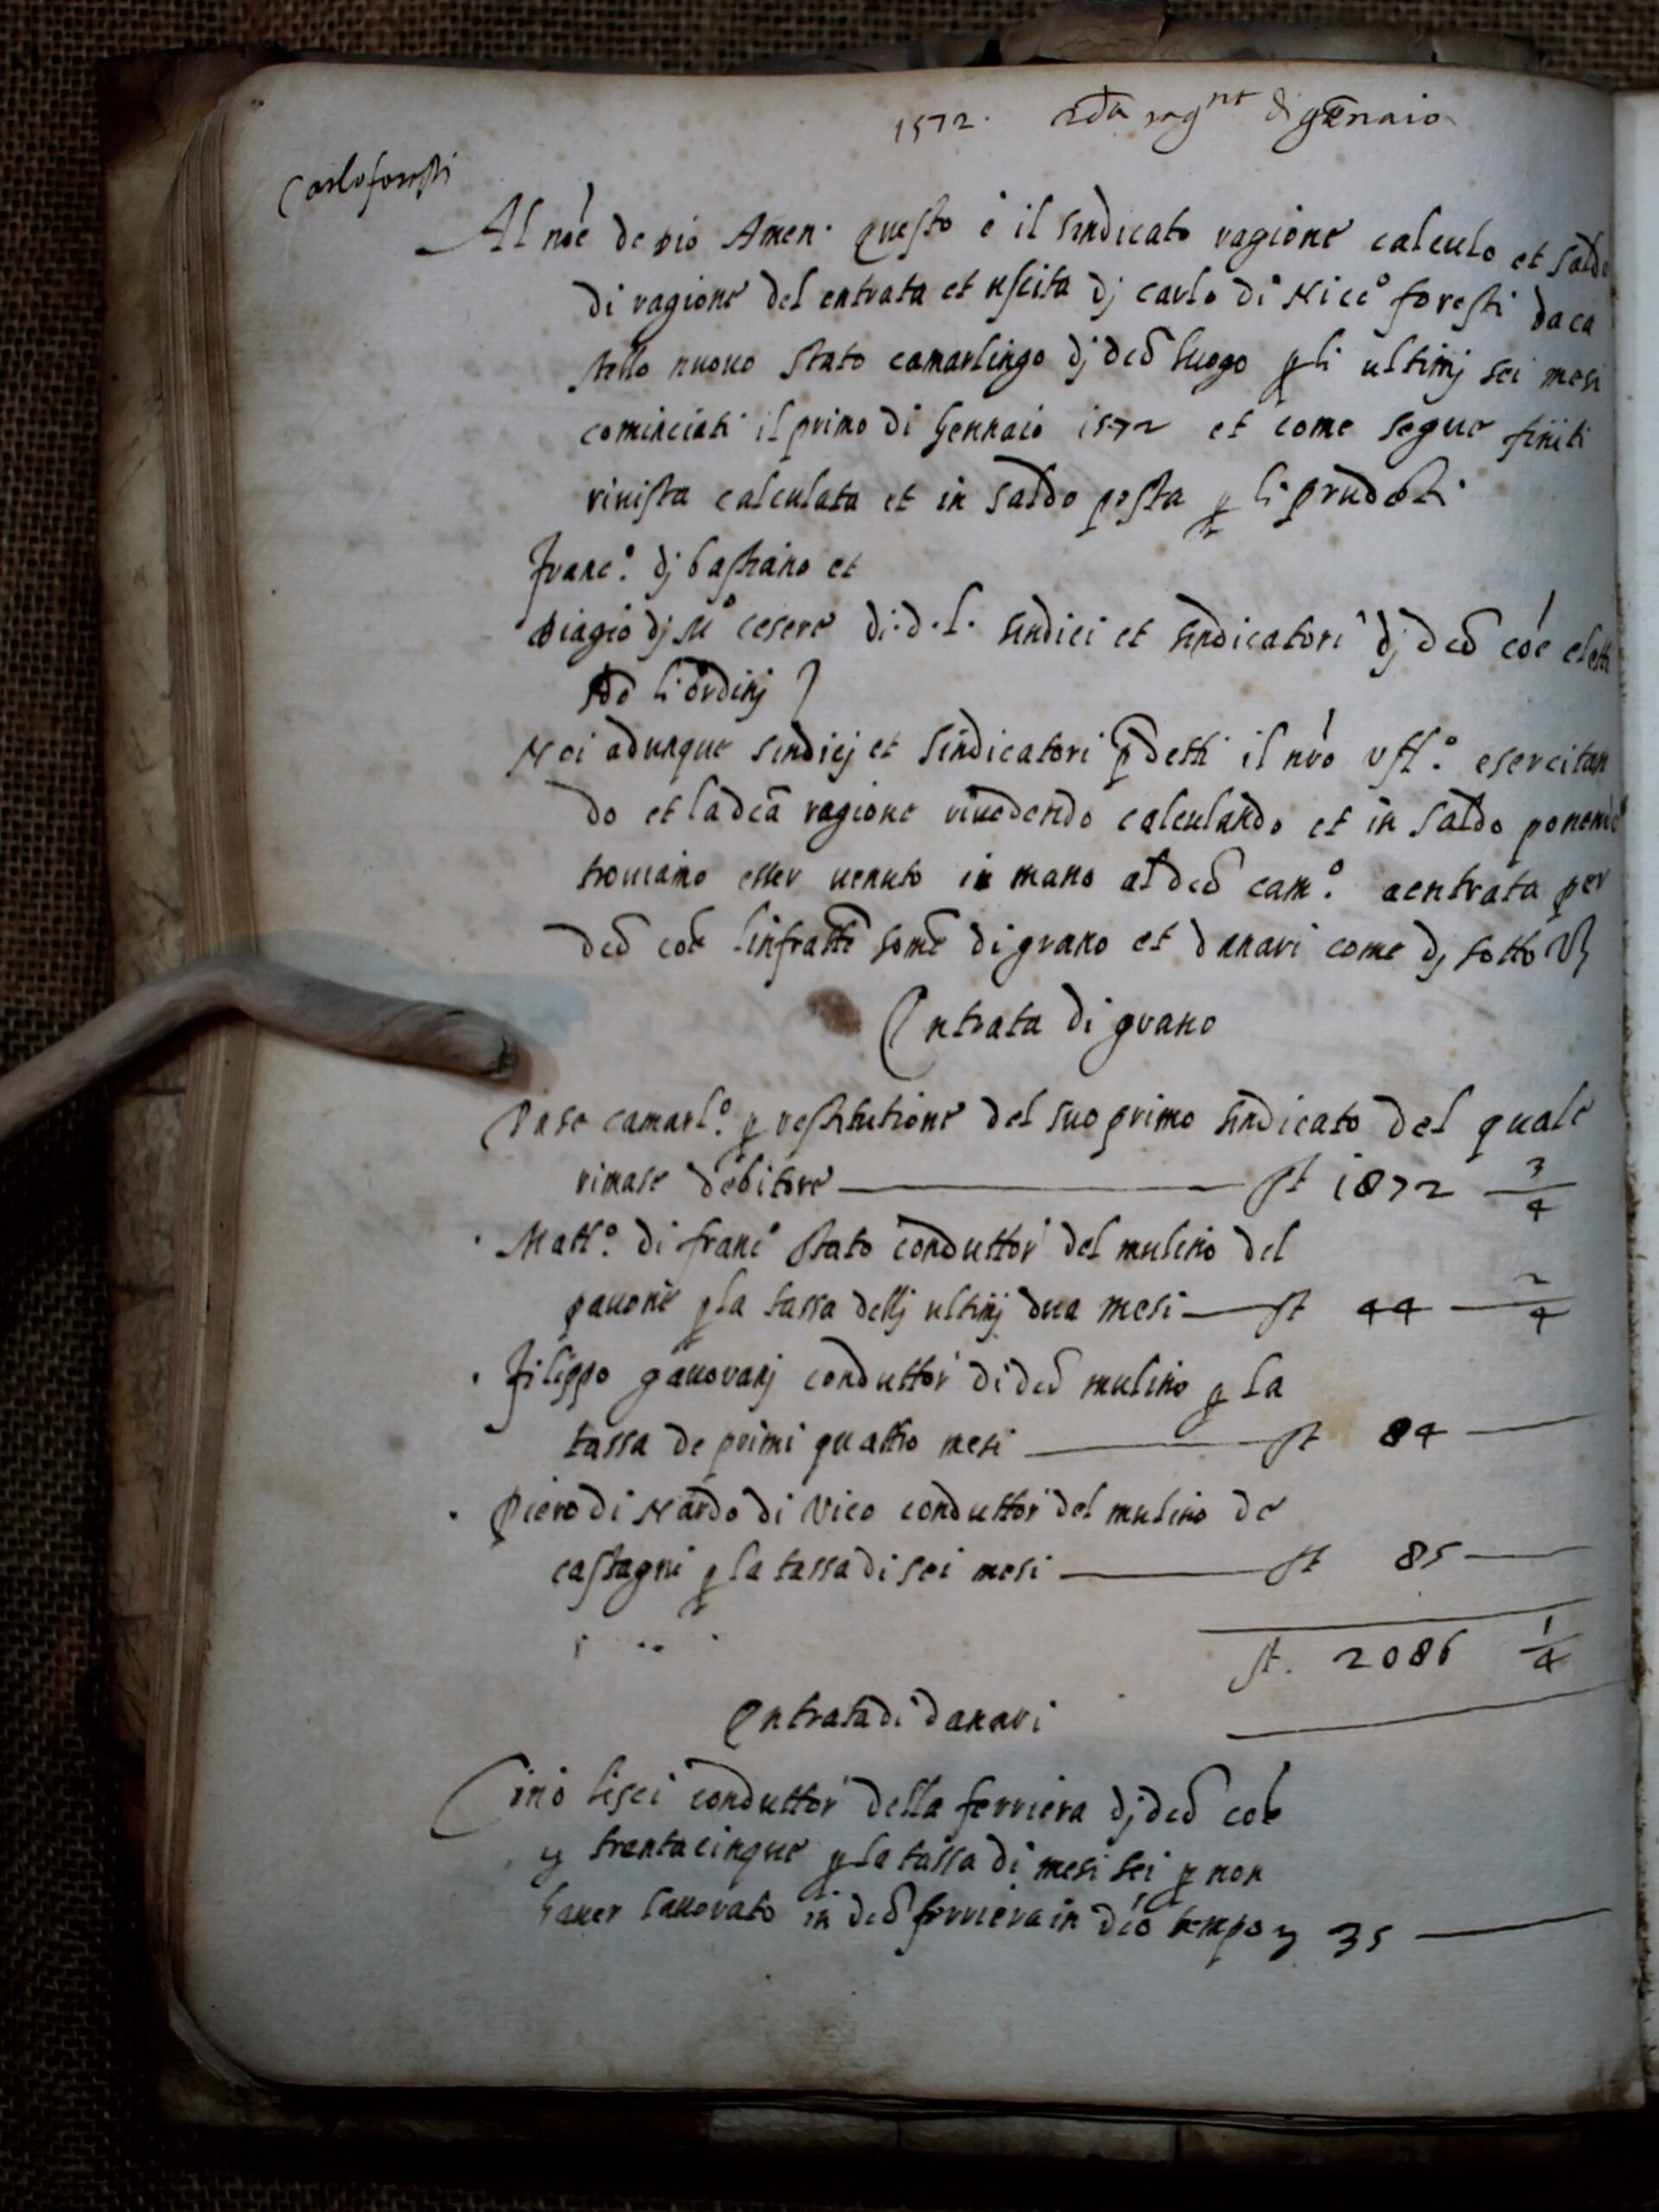 1572. 2da rag.ne di gennaio
Carlo foresti
Al nōe de dio Amen. questo è il sindicato ragione calculo et saldo
di ragione del entrata et uscita dj carlo di Nicc° foresti da ca
stello nuouo stato camarlingo dj dc̄o luogo p li ultimj sei mesi
cominciati il primo di Gennaio 1572 et come segue finiti
riuista calculata et in saldo posta p li prudēti
franc°. dj bastiano et
Biagio dj M° cesere di.d.l. sindici et sindicatori dj dc̄o cōe eletti
sdo li ordinj
Noi adunque sindicj et sindicatori p̄detti il nr̄o uft°. esercitan
do et la dc̄a ragione riuedendo calculando et in saldo ponendo
trouiamo esser uenuto in mano al dc̄o cam°. a entrata per
dc̄o cōe l'infratte some di grano et danari come dj sotto
Entrata di grano
Da se camarl°. p restitutione del suo primo sindicato del quale
rimase debitore st 1872 3/4
Matt°. di franc° stato conduttor del mulino del
pauone p la tassa dellj ultimj dua mesi st 44 2/4
filippo gauouanj conduttor di dc̄o mulino p la
tassa de primi quattro mesi st 84
Piero di Nardo di Vico conduttor del mulino de
castagni p la tassa di sei mesi st 85
st. 2086 1/4
Entrata di danari
Cino lisci conduttor della ferriera dj dc̄o cōe
trentacinque p la tassa di mesi sei p non
hauer lauorato in dc̄o ferriera in dc̄o tempo 35